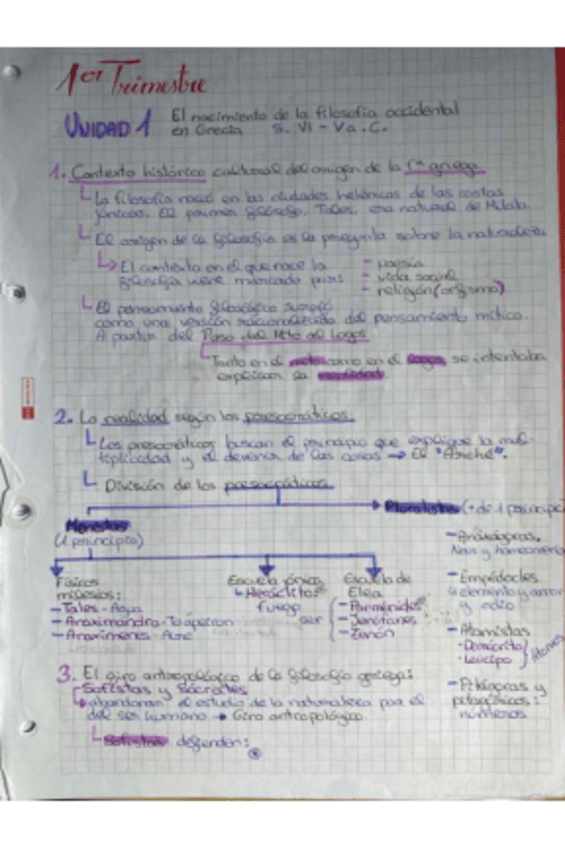 1er Trimestre
UNIDAD 1 El nacimiento de la filosofía occidental
en Grecia S. VI - V a.C.
1. Contexto histórico cultural del origen de la fª griega
La filosofía nació en las ciudades helénicas de las costas
jónicas. El primer filósofo, Tales, era natural de Mileto.
El origen de la filosofía es la pregunta sobre la naturaleza
El contexto en el que nace la
filosofía viene marcado por:
- poesía
- vida social
- religión (orfismo)
El pensamiento filosófico surgió
como una versión racionalizada del pensamiento mítico.
A partir del Paso del Mito al Logos
Tanto en el mito como en el logos, se intentaba
explicar la realidad.
2. La realidad según los presocráticos
Los presocráticos buscan el principio que explique la mul-
tiplicidad y el devenir de las cosas → El "Arché".
División de los presocráticos
Monistas
(1 principio)
Pluralistas (+ de 1 principio
Físicos
milesios:
- Tales - Agua
- Anaximandro - To ápeiron
- Anaxímenes - Aire
Escuela jónica
Heráclito:
fuego
Escuela de
Elea
ser
- Parménides
- Jenófanes
- Zenón
- Anaxágoras.
Nous y
- Empédocles
4 elementos y amor
y odio
- Atomistas
· Demócrito
· Leucipo
Átomos
- Pitágoras y
pitagóricos:
números
3. El giro antropológico de la filosofía griega:
Sofistas y Sócrates
abandonan el estudio de la naturaleza por el
del ser humano. → Giro antropológico.
Sofistas defienden: